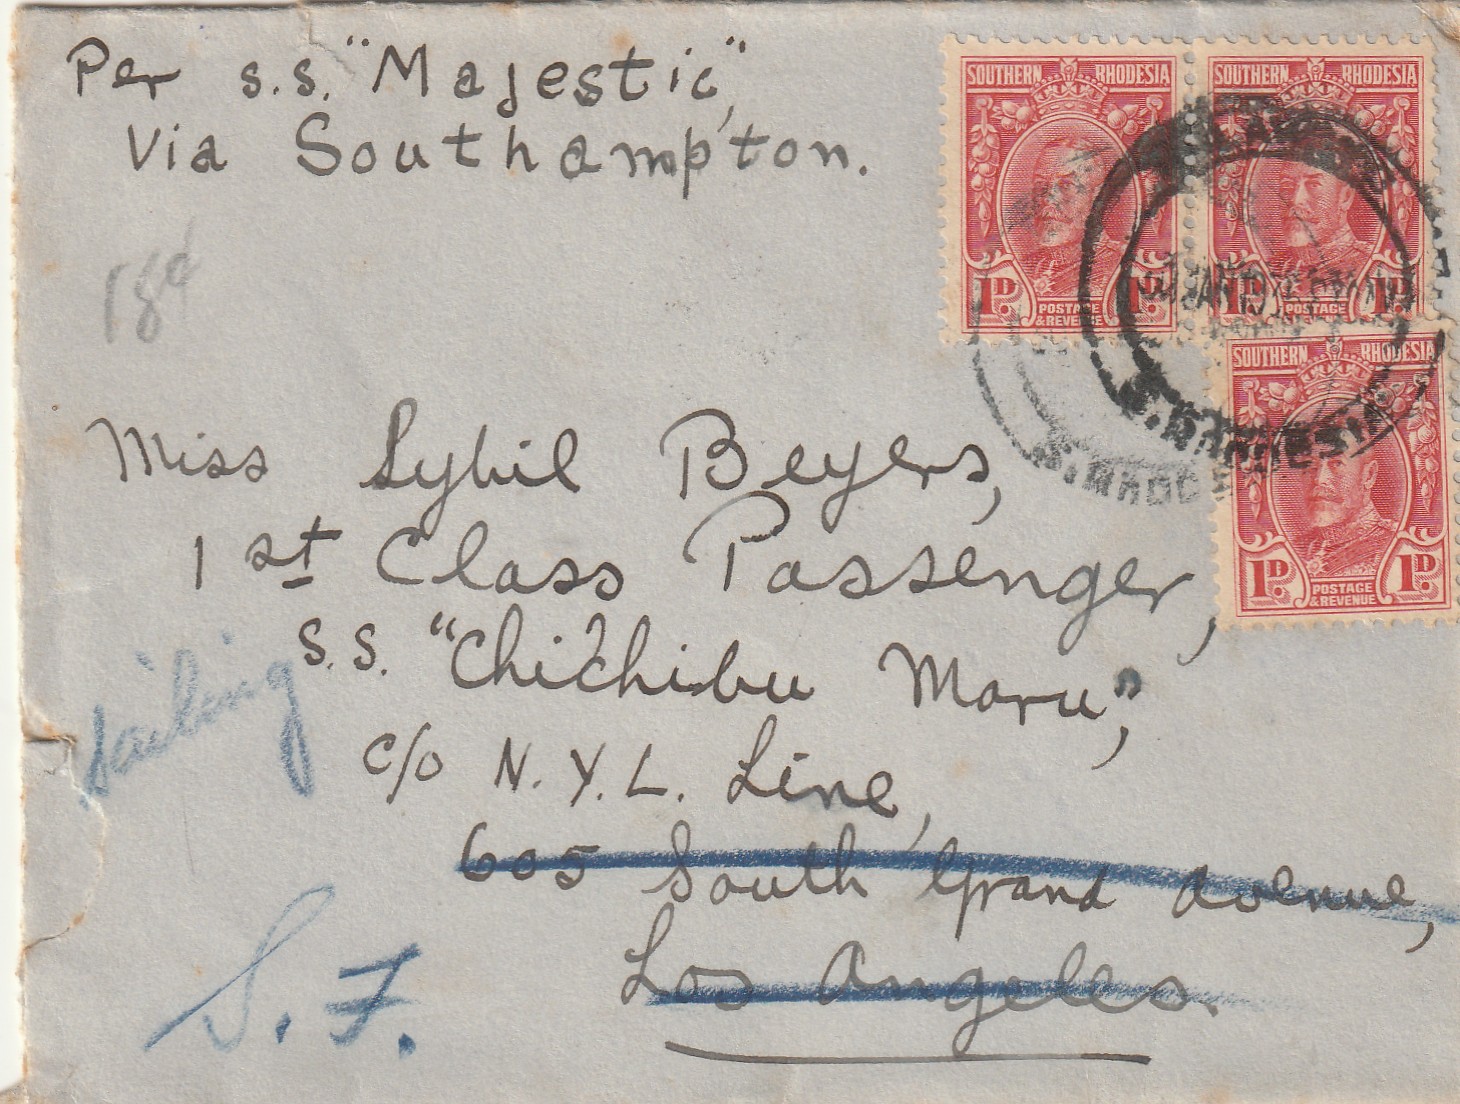 Per s.s. "Majestic",
Via Southampton.
18d
SOUTHERN RHODESIA
1D. 1D.
POSTAGE
& REVENUE
SOUTHERN RHODESIA
1D. 1D.
POSTAGE
JAN 19
S. RHODESIA
SOUTHERN RHODESIA
1D. 1D.
POSTAGE
& REVENUE
Miss Sybil Beyers,
1st Class Passenger,
S.S. "Chichibu Maru",
c/o N.Y.L. Line,
605 South Grand Avenue,
Los Angeles.
sailing
S.F.